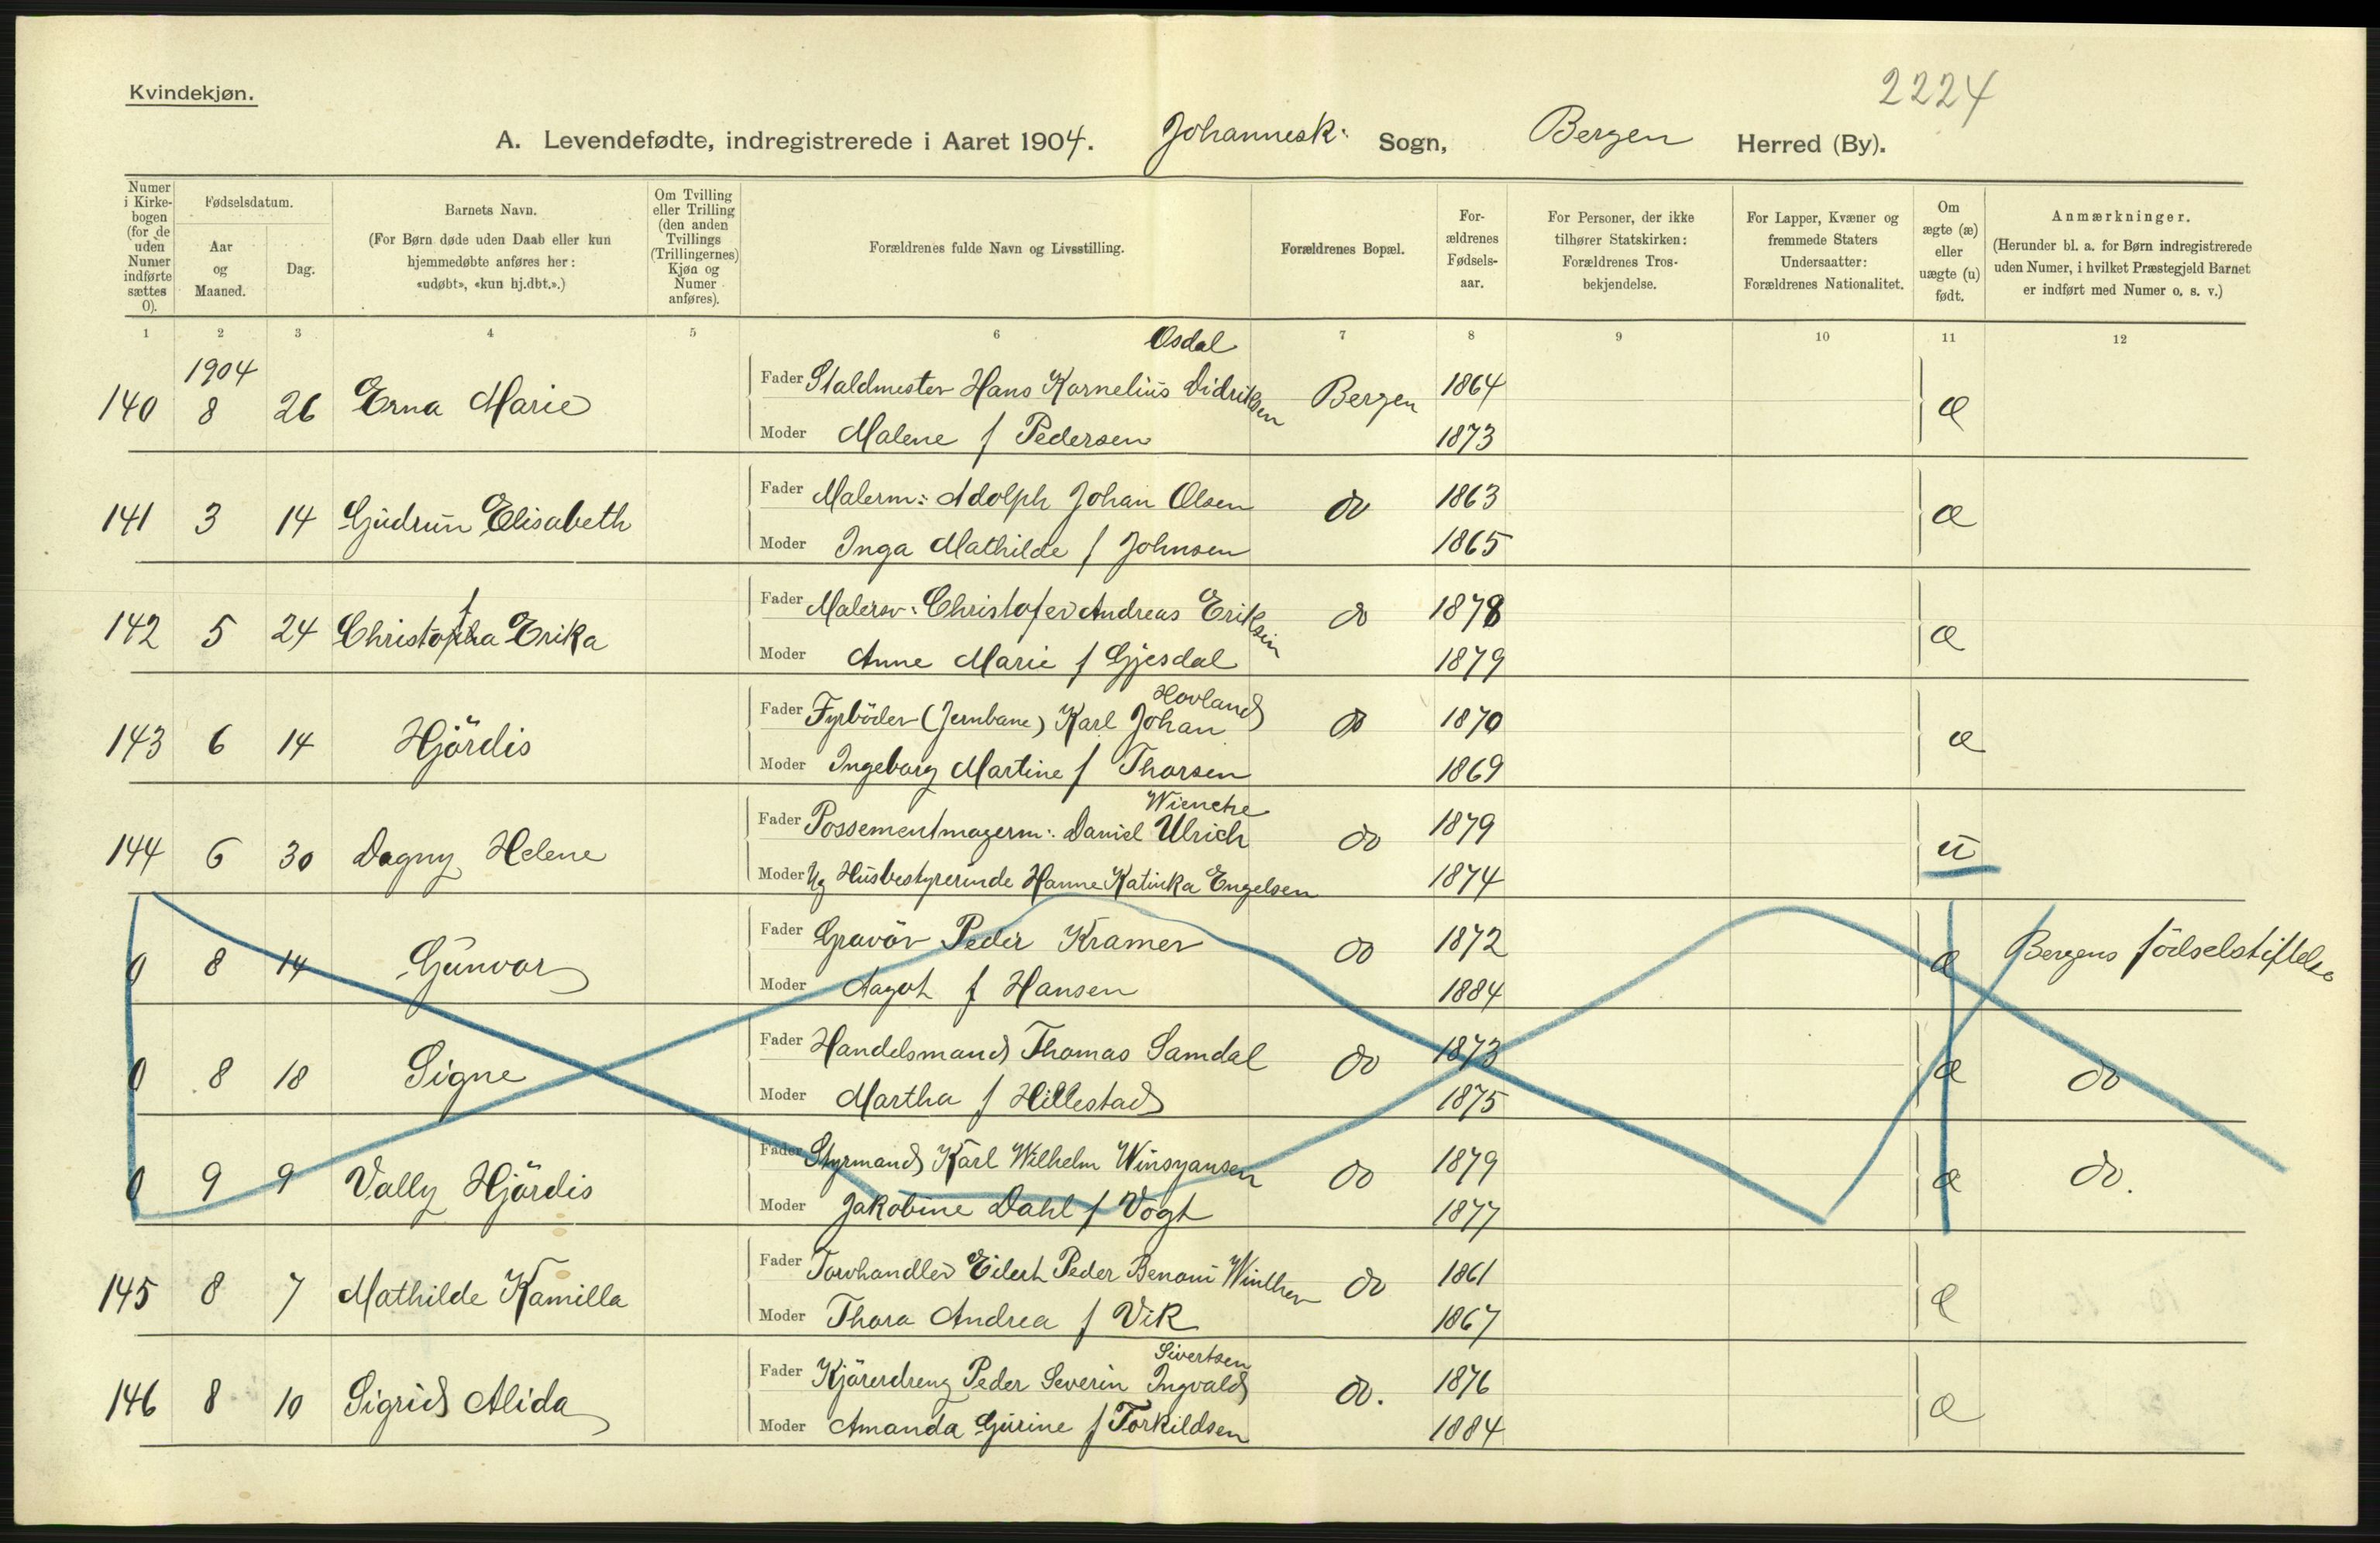 2224
Kvindekjøn.
A. Levendefødte, indregistrerede i Aaret 1904. Johannesk: Sogn, Bergen Herred (By).
Numer i Kirke-bogen (for de uden Numer indførte sættes 0).
Fødselsdatum.
Aar og Maaned.
Dag.
Barnets Navn.
(For Børn døde uden Daab eller kun hjemmedøbte anføres her: «udøbt», «kun hj.dbt.».)
Om Tvilling eller Trilling (den anden Tvillings (Trillingernes) Kjøn og Numer anføres).
Forældrenes fulde Navn og Livsstilling.
Forældrenes Bopæl.
For-ældrenes Fødsels-aar.
For Personer, der ikke tilhører Statskirken: Forældrenes Tros-bekjendelse.
For Lapper, Kvæner og fremmede Staters Undersaatter: Forældrenes Nationalitet.
Om ægte (æ) eller uægte (u) født.
Anmærkninger.
(Herunder bl. a. for Børn indregistrerede uden Numer, i hvilket Præstegjeld Barnet er indført med Numer o. s. v.)
1 2 3 4 5 6 7 8 9 10 11 12
1904
Osdal
140 8 26 Erna Marie Fader Staldmester Hans Kornelius Didriksen Bergen 1864 æ
Moder Malene f Pedersen 1873
141 3 14 Gudrun Elisabeth Fader Malerm: Adolph Johan Olsen do 1863 æ
Moder Inga Mathilde f Johnsen 1865
142 5 24 Christofa Erika Fader Malersv: Christofer Andreas Eriksen do 1878 æ
Moder Anne Marie f Gjesdal 1879
Hovland
143 6 14 Hjördis Fader Fyrböder (Jernbane) Karl Johan do 1870 æ
Moder Ingeborg Martine f Thorsen 1869
Wiencke
144 6 30 Dagny Helene Fader Possementmagerm: Daniel Ulrich do 1879 u
Moder Ug Husbestyrerinde Hanne Katinka Engelsen 1874
0 8 14 Gunvor Fader Gravör Peder Kramer do 1872 æ Bergens födselstiftelse
Moder Aagot f Hansen 1884
0 8 18 Signe Fader Handelsmand Thomas Samdal do 1873 æ do
Moder Martha f Hillestad 1875
0 9 9 Vally Hjördis Fader Styrmand Karl Wilhelm do 1879 æ do.
Moder Jakobine Dahl f Vogt 1877
145 8 7 Mathilde Kamilla Fader Torvhandler Eilert Peder Benoni Winther do 1861 æ
Moder Thora Andrea f Vik 1867
Sivertsen
146 8 10 Sigrid Alida Fader Kjöredreng Peder Severin Ingvald do. 1876 æ
Moder Amanda Gurine f Torkildsen 1884